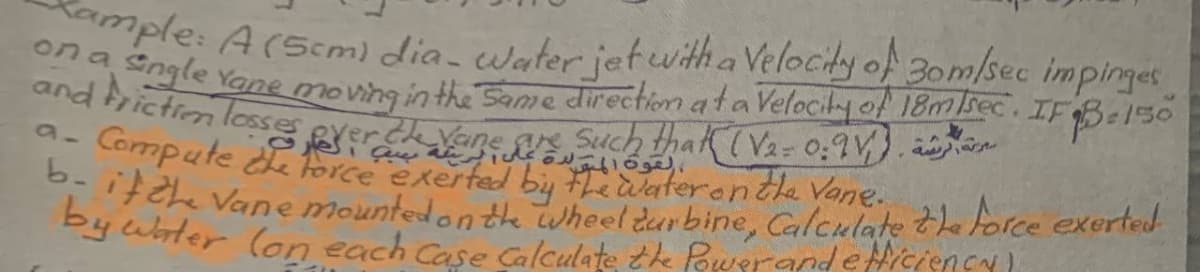 Example: A (5cm) dia- water jet with a Velocity of 30m/sec impinges
on a single vane moving in the same direction at a Velocity of 18m/sec. IF β=150°
and friction losses over the Vane are such that (V2=0.9V1).
a- Compute the force exerted by the water on the Vane.
b- if the Vane mounted on the wheel turbine, Calculate the force exerted
by water (on each Case Calculate the Power and efficiency)